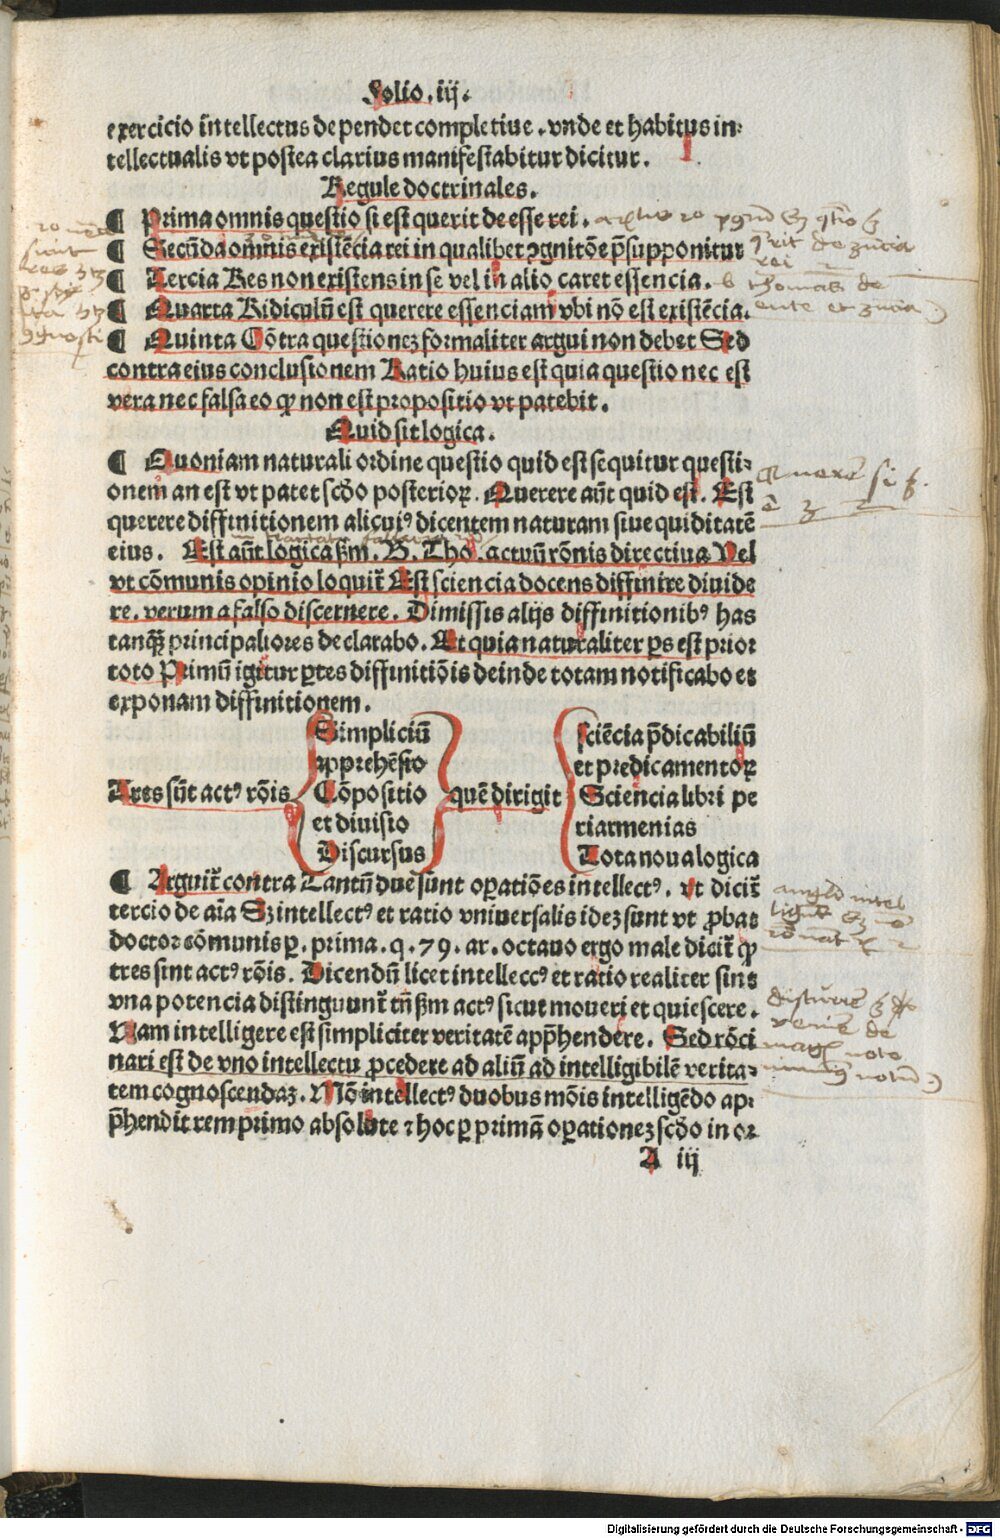 Folio. iij.
exercicio intellectus dependet completiue. vnde et habitus in-
tellectualis vt postea clarius manifestabitur dicitur.
Regule doctrinales.
¶ Prima omnis questio si est querit de esse rei.
¶ Secūda omnis existēcia rei in qualibet ꝯgnitōe p̄supponitur
¶ Tercia Res non existens in se vel in alio caret essencia.
¶ Quarta Ridiculū est querere essenciam vbi nō est existēcia.
¶ Quinta Cōtra questionez formaliter argui non debet Sed
contra eius conclusionem Ratio huius est quia questio nec est
vera nec falsa eo ꝙ non est propositio vt patebit.
Quid sit logica.
¶ Quoniam naturali ordine questio quid est sequitur questi-
onem an est vt patet scd̄o posterioꝝ. Querere aūt quid est. Est
querere diffinitionem alicuiꝰ dicentem naturam siue quiditatē
eius. Est aūt logica sm̄. B. Tho. actuū rōnis directiua Vel
vt cōmunis opinio loquit᷑ Est sciencia docens diffinire diuide
re. verum a falso discernere. Dimissis alijs diffinitionibꝰ has
tanqȝ principaliores declarabo. At quia naturaliter ꝑs est prior
toto Primū igitur ꝑtes diffinitiōis deinde totam notificabo et
exponam diffinitionem.
Tres sūt actꝰ rōis
Simpliciū
apprehēsio
Cōpositio
et diuisio
Discursus
quē dirigit
sciēcia p̄dicabiliū
et predicamentoꝝ
Sciencia libri pe
riarmenias
Tota noua logica
¶ Arguit᷑ contra Tantū due sunt oꝑatiōes intellectꝰ. vt dicit᷑
tercio de aīa Sz intellectꝰ et ratio vniuersalis idez sunt vt ꝓbat
doctor cōmunis ꝑ. prima. q. 79. ar. octauo ergo male dicit᷑ ꝙ
tres sint actꝰ rōis. Dicendū licet intellectꝰ et ratio realiter sint
vna potencia distinguunt᷑ tn̄ sm̄ actꝰ sicut moueri et quiescere.
Nam intelligere est simpliciter veritatē app̄hendere. Sed rōci
nari est de vno intellectu ꝓcedere ad aliū ad intelligibilē verita-
tem cognoscendaz. Mō intellectꝰ duobus mōis intelligēdo ap-
p̄hendit rem primo absolute ⁊ hoc ꝑ primā oꝑationez scd̄o in or
A iij
Digitalisierung gefördert durch die Deutsche Forschungsgemeinschaft - DFG